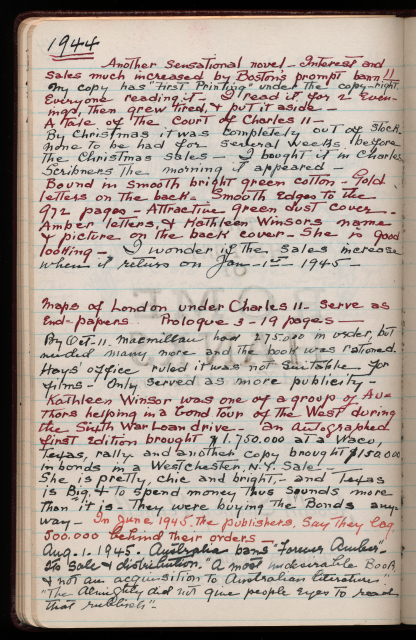 1944
Another sensational novel - Interest and
sales much increased by Boston's prompt bann!!
My copy has "First Printing" under the copy-right.
Everyone reading it - I read it for 2 Even-
ings, then grew tired, & put it aside -
A tale of the Court of Charles 11 -
By Christmas it was completely out of stock.
none to be had for several weeks before
the Christmas sales - I bought it in Charles
Scribners the morning it appeared -
Bound in smooth bright green cotton - Gold
letters on the back - Smooth Edges to the
972 pages - Attractive Green dust cover -
Amber letters & Kathleen Winsors name
& picture on the back cover - She is good
looking - I wonder if the sales increase
when it returns on Jan - 1st - 1945 -
Maps of London under Charles 11 - Serve as
End-papers. Prologue 3 - 19 pages -
By Oct - 11. Macmillan had 275.000 in order, but
needed many more and the book was rationed.
Hays' office ruled it was not suitable for
films - Only served as more publicity -
Kathleen Winsor was one of a group of Au-
thors helping in a bond Tour of the West during
the Sixth War Loan drive - an Autographed
first Edition brought $1.750.000 at a Waco,
Texas, rally and another copy brought $150.000
in bonds in a Westchester, N.Y. Sale -
She is pretty, chic and bright, - and Texas
is Big, & to spend money thus sounds more
than it is - They were buying the Bonds any-
way - In June, 1945, the publishers, Say They lag
500.000 behind their orders -
Aug. 1. 1945. Australia bans "Forever Amber -
to Sale & distribution. "A most undesirable Book
& not an acquisition to Australian literature."
"The Almighty did not give people Eyes to read
that rubbish".